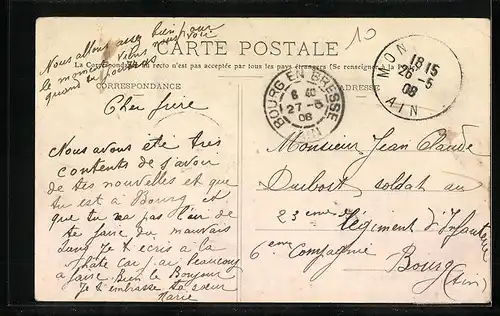 Nous allons assez bien pour
le moment viens nous voir
quand tu pourras
10
CARTE POSTALE
La Correspondance au recto n'est pas acceptée par tous les pays étrangers (Se renseigner à la Poste)
CORRESPONDANCE
ADRESSE
BOURG EN BRESSE
6 40
27 - 5
08
AIN
MON
18 15
26 - 5
08
AIN
Cher frère
Nous avons été très
contents de savoir
de tes nouvelles et que
tu est à Bourg et
que tu na pas l'air de
te faire du mauvais
sang Je t ecris a la
hate car j ai beaucoup
a faire Bien le Bonjour
Je t embrasse ta sœur
Marie
Monsieur Jean Claude
Dubost soldat au
23 eme Regiment d'Infanterie
6 eme Compagnie
Bourg
(Ain)